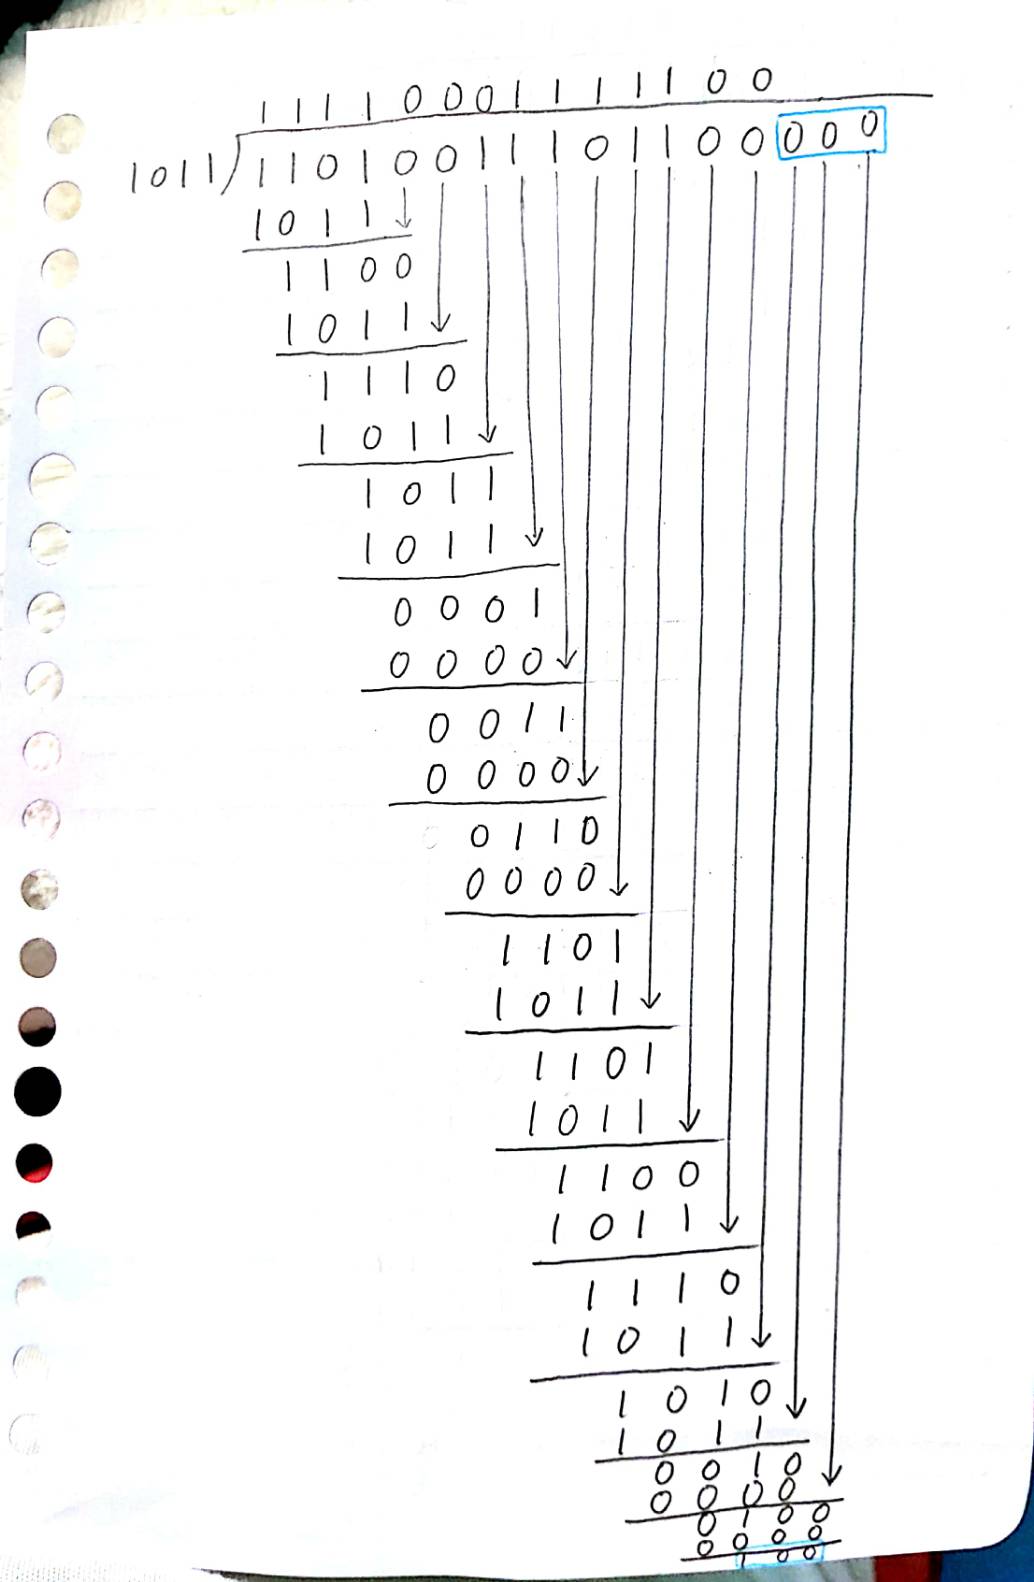 1 1 1 1 0 0 0 1 1 1 1 1 0 0
1011 ) 1 1 0 1 0 0 1 1 1 0 1 1 0 0 0 0 0
1 0 1 1
1 1 0 0
1 0 1 1
1 1 1 0
1 0 1 1
1 0 1 1
1 0 1 1
0 0 0 1
0 0 0 0
0 0 1 1
0 0 0 0
0 1 1 0
0 0 0 0
1 1 0 1
1 0 1 1
1 1 0 1
1 0 1 1
1 1 0 0
1 0 1 1
1 1 1 0
1 0 1 1
1 0 1 0
1 0 1 1
0 0 1 0
0 0 0 0
0 1 0 0
0 0 0 0
1 0 0